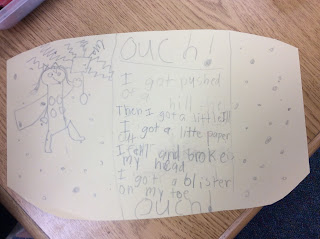 ouch!
I got pushed
of a hill
Then I got a little ill
I got a litte paper
cut
I fell and broke
my head
I got a blister
on my toe
ouch!